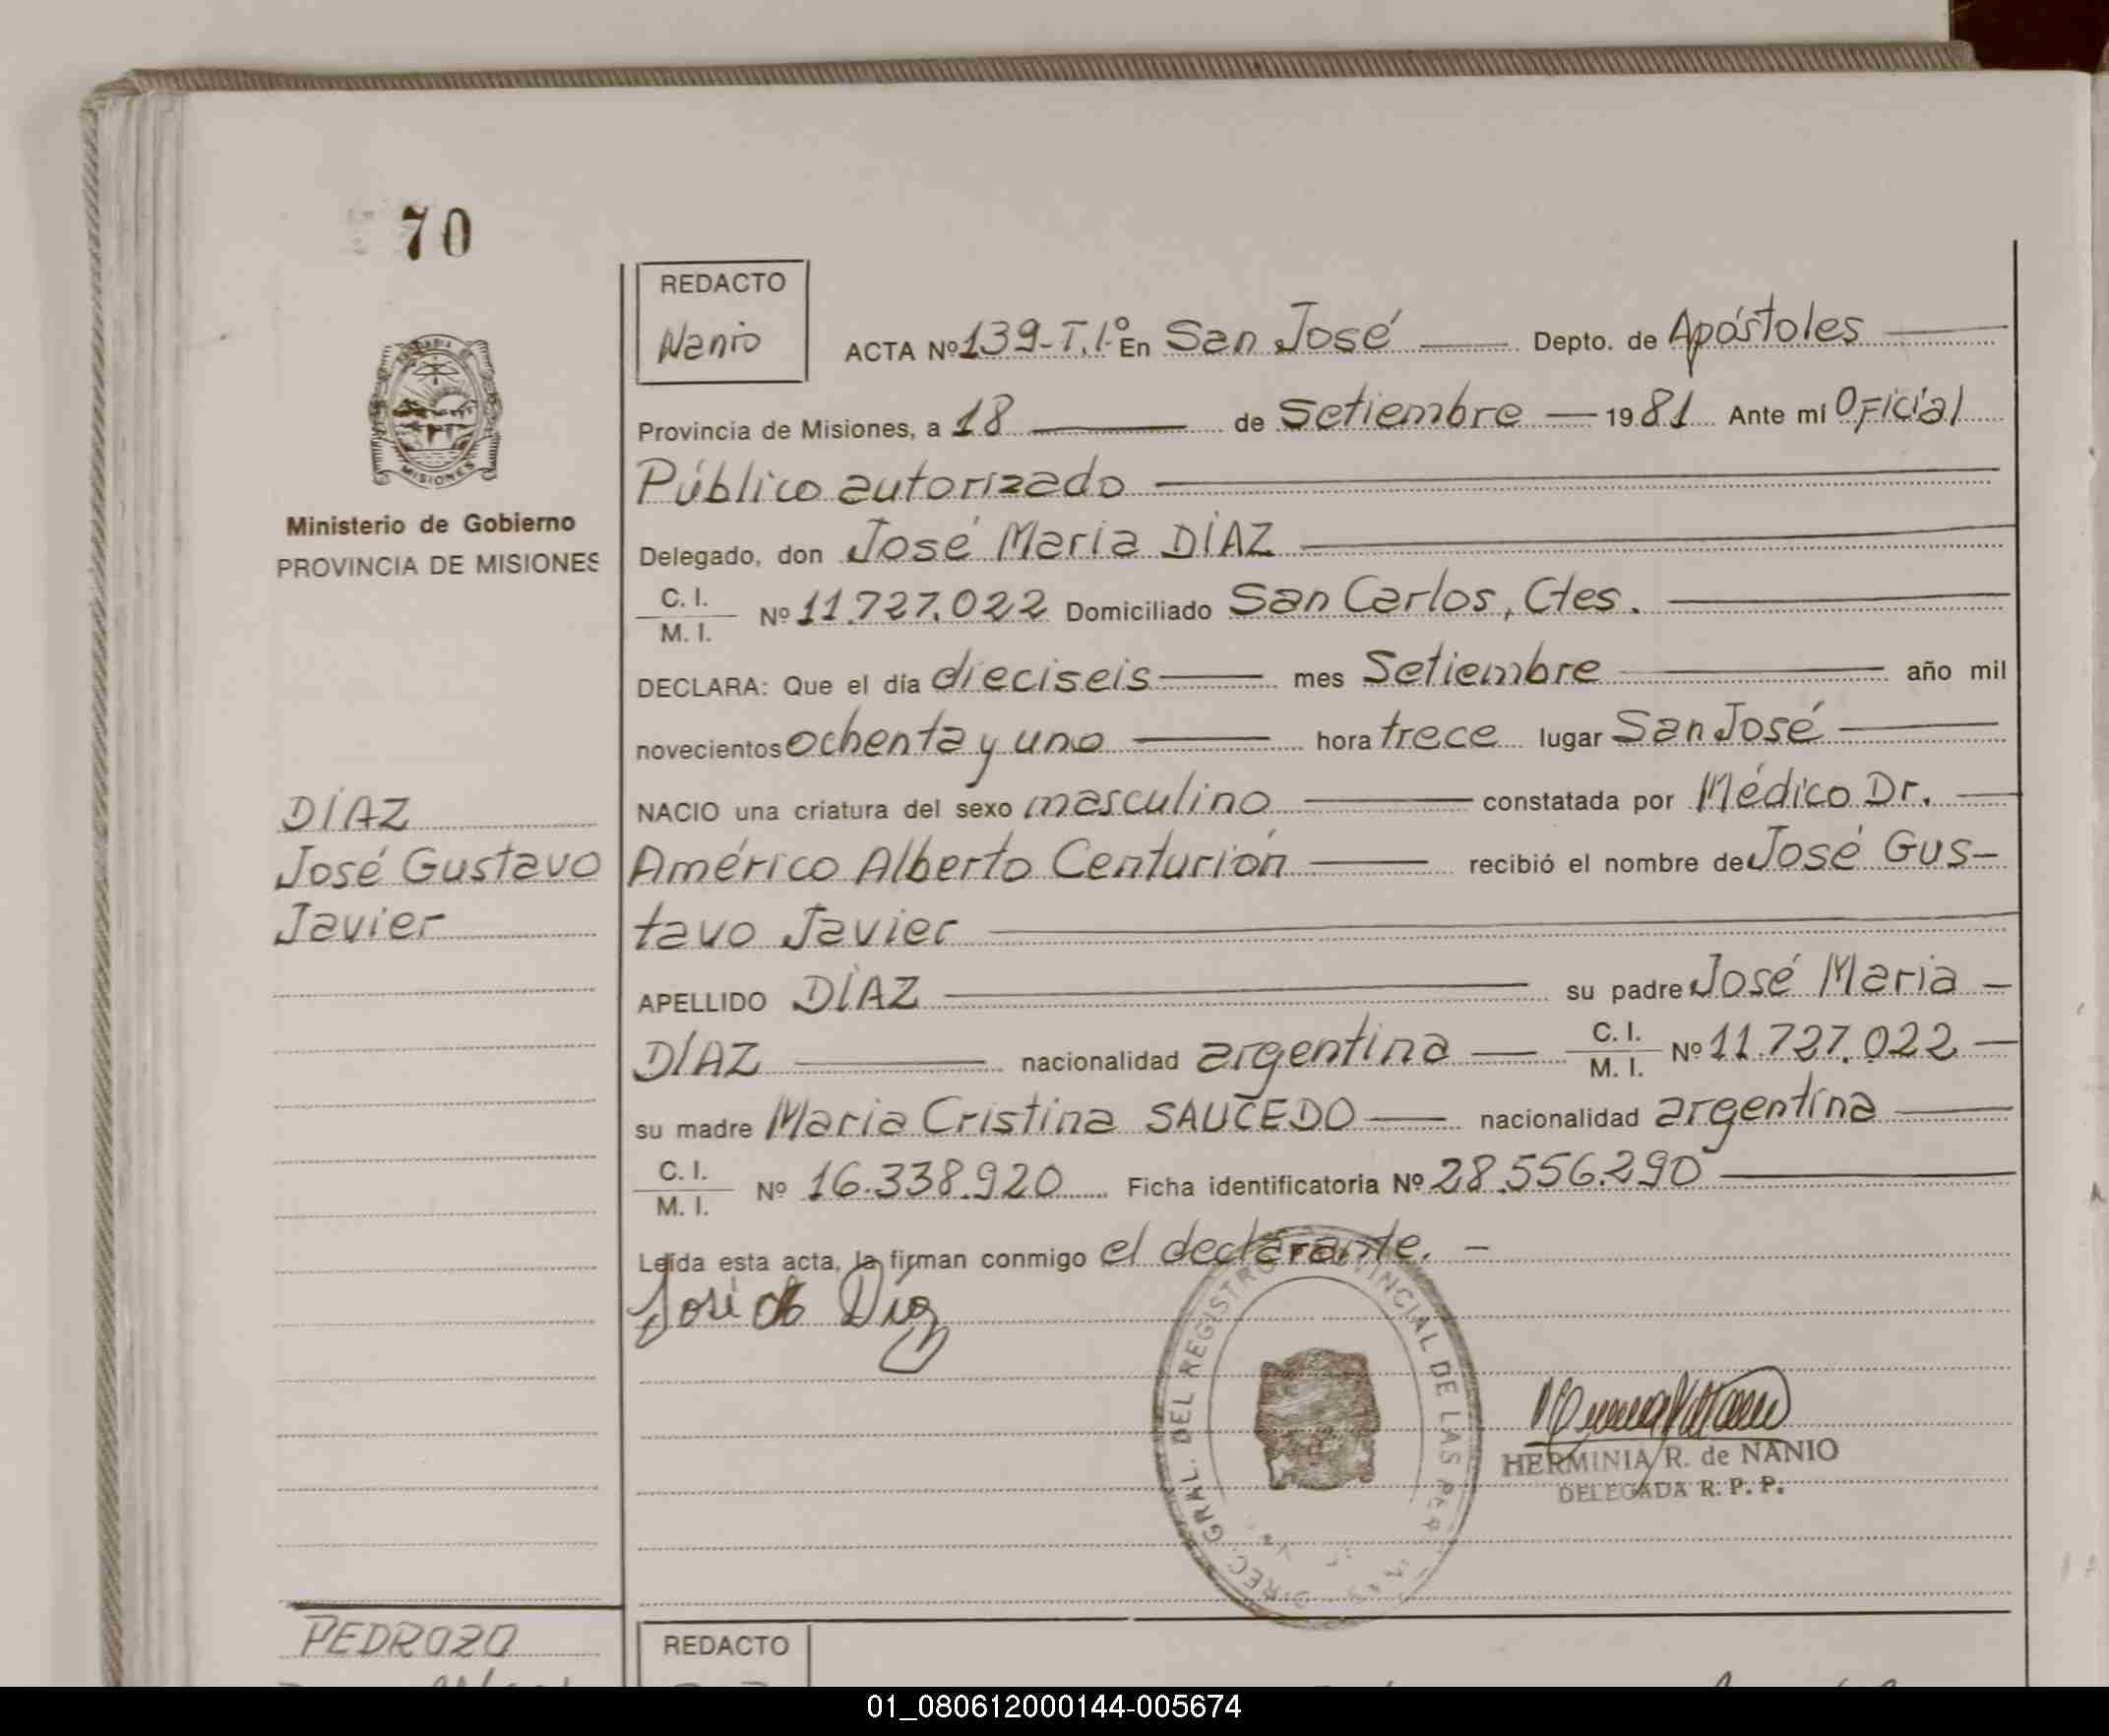 70
REDACTO
Nanio
ACTA Nº 139-T.1º En San José Depto. de Apóstoles
MISIONES
Provincia de Misiones, a 18 de Setiembre 1981 Ante mí Oficial
Público autorizado
Ministerio de Gobierno
PROVINCIA DE MISIONES
Delegado, don José Maria DÍAZ
C. I.
M. I. Nº 11.727.022 Domiciliado San Carlos, Ctes.
DECLARA: Que el día dieciseis mes Setiembre año mil
novecientos ochenta y uno hora trece lugar San José
DÍAZ
José Gustavo
Javier
NACIO una criatura del sexo masculino constatada por Médico Dr.
Américo Alberto Centurión recibió el nombre de José Gus-
tavo Javier
APELLIDO DÍAZ su padre José Maria
DÍAZ nacionalidad argentina C. I. M. I. Nº 11.727.022
su madre Maria Cristina SAUCEDO nacionalidad argentina
C. I.
M. I. Nº 16.338.920 Ficha identificatoria Nº 28.556.290
Leída esta acta, la firman conmigo el declarante.
José Díaz
DIREC. GRAL. DEL REGISTRO PROVINCIAL DE LAS PERSONAS
HERMINIA R. de NANIO
DELEGADA R. P. P.
PEDROZO
REDACTO
01_080612000144-005674